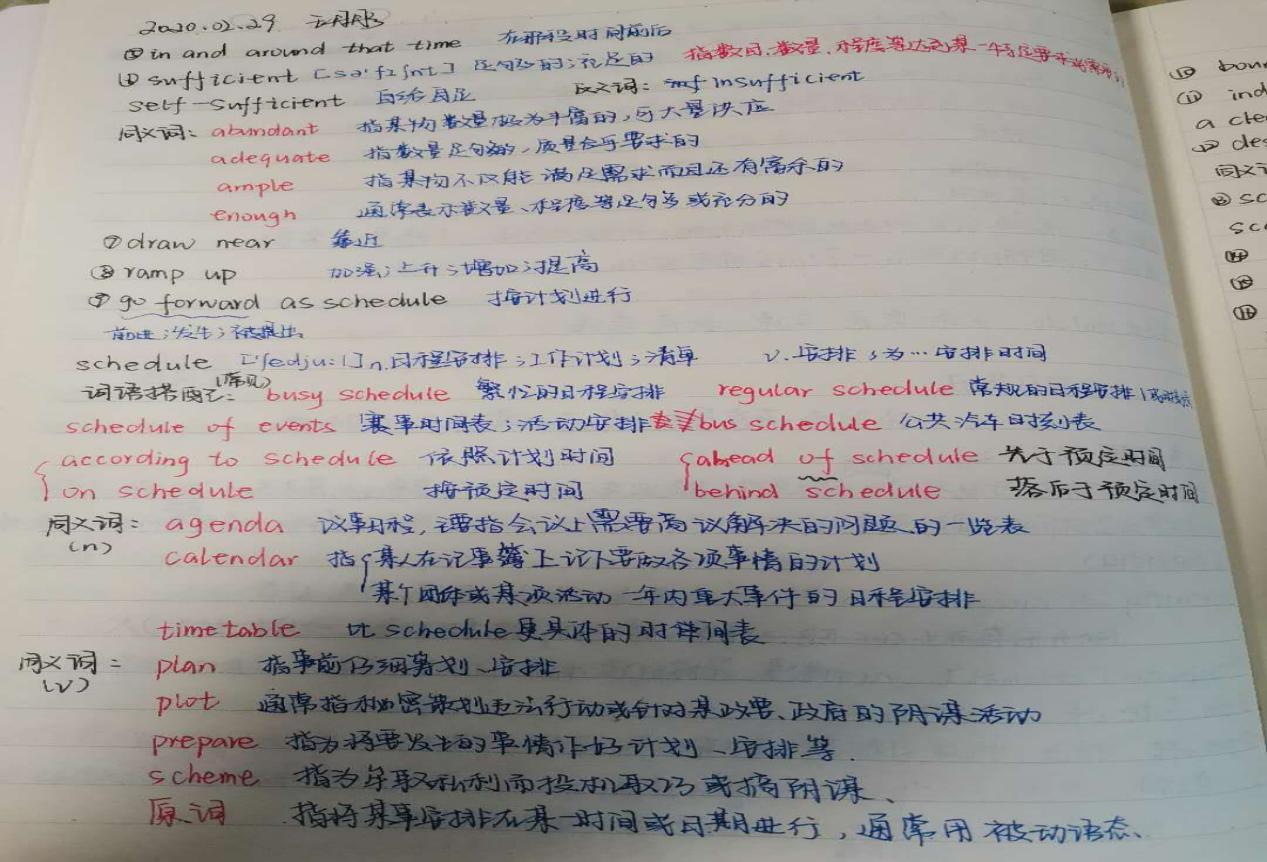 2020.02.29
⑤in and around that time 在那段时间前后
⑥sufficient [sə'fɪʃnt] 足够的;充足的 指数目、数量、程度等达到某一特定要求或需要
self-sufficient 自给自足 反义词: insufficient
同义词: abundant 指某物数量极为丰富的,可大量供应
adequate 指数量足够的,质量合乎要求的
ample 指某物不仅能满足需求而且还有富余的
enough 通常表示数量、程度等足够或充分的
⑦draw near 靠近
⑧ramp up 加强;上升;增加;提高
⑨go forward as schedule 按计划进行
前进;发生;被提出
schedule ['ʃedjuːl] n.日程安排;工作计划;清单 v.安排;为…安排时间
词语搭配:(常见) busy schedule 繁忙的日程安排 regular schedule 常规的日程安排
schedule of events 赛事时间表;活动安排表 bus schedule 公共汽车时刻表
according to schedule 依照计划时间 ahead of schedule 先于预定时间
on schedule 按预定时间 behind schedule 落后于预定时间
同义词: agenda 议事日程,主要指会议上需要商议解决的问题的一览表
(n) calendar 指 某人在记事簿上记下要做各项事情的计划
某个团体或某项活动一年内重大事件的日程安排
timetable 比schedule更具体的时间表
同义词: plan 指事前仔细筹划、安排
(v)
plot 通常指秘密策划违法行动或针对某政要、政府的阴谋活动
prepare 指为将要发生的事情作好计划、安排等.
scheme 指为牟取私利而投机取巧或搞阴谋、
原词 指将某事安排在某一时间或日期进行,通常用被动语态、
⑩
⑪ ind
a
⑫ des
同义
⑬ sc
sc
⑭
⑮
⑯